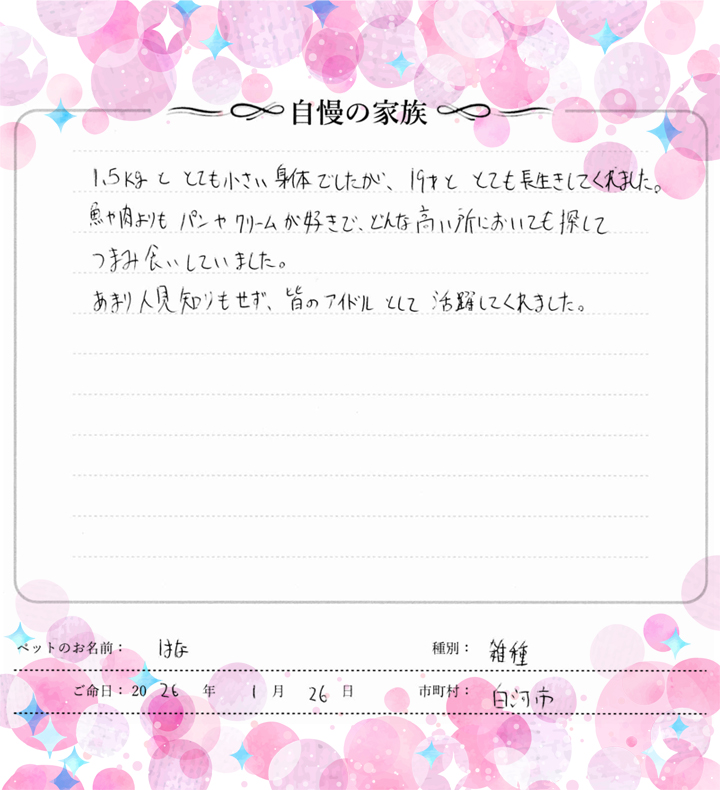 自慢の家族
1.5kgと とても小さい身体でしたが、19才と とても長生きしてくれました。
魚や肉よりも パンやクリームが好きで、どんな高い所においても探して
つまみ食いしていました。
あまり人見知りもせず、皆のアイドルとして 活躍してくれました。
ペットのお名前： はな 種別： 雑種
ご命日：2026年 1月 26日 市町村： 白河市